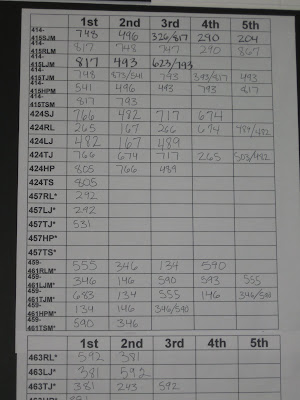 1st 2nd 3rd 4th 5th
414-415SJM 748 496 326/817 290 204
414-415RLM 817 748 747 290 867
414-415LJM 817 493 623/793
414-415TJM 748 873/541 793 393/817 493
414-415HPM 541 496 493 793 817
414-415TSM 817 793
424SJ 766 482 717 674
424RL 265 167 266 674 789/482
424LJ 482 167 489
424TJ 766 674 717 265 503/482
424HP 805 766 489
424TS 805
457RL* 292
457LJ* 292
457TJ* 531
457HP*
457TS*
459-461RLM* 555 346 134 590
459-461LJM* 346 146 590 593 555
459-461TJM* 683 134 555 146
459-461HPM* 134 146 346/590
459-461TSM* 590 346
1st 2nd 3rd 4th 5th
463RL* 592 381
463LJ* 381 592
463TJ* 381 243 592